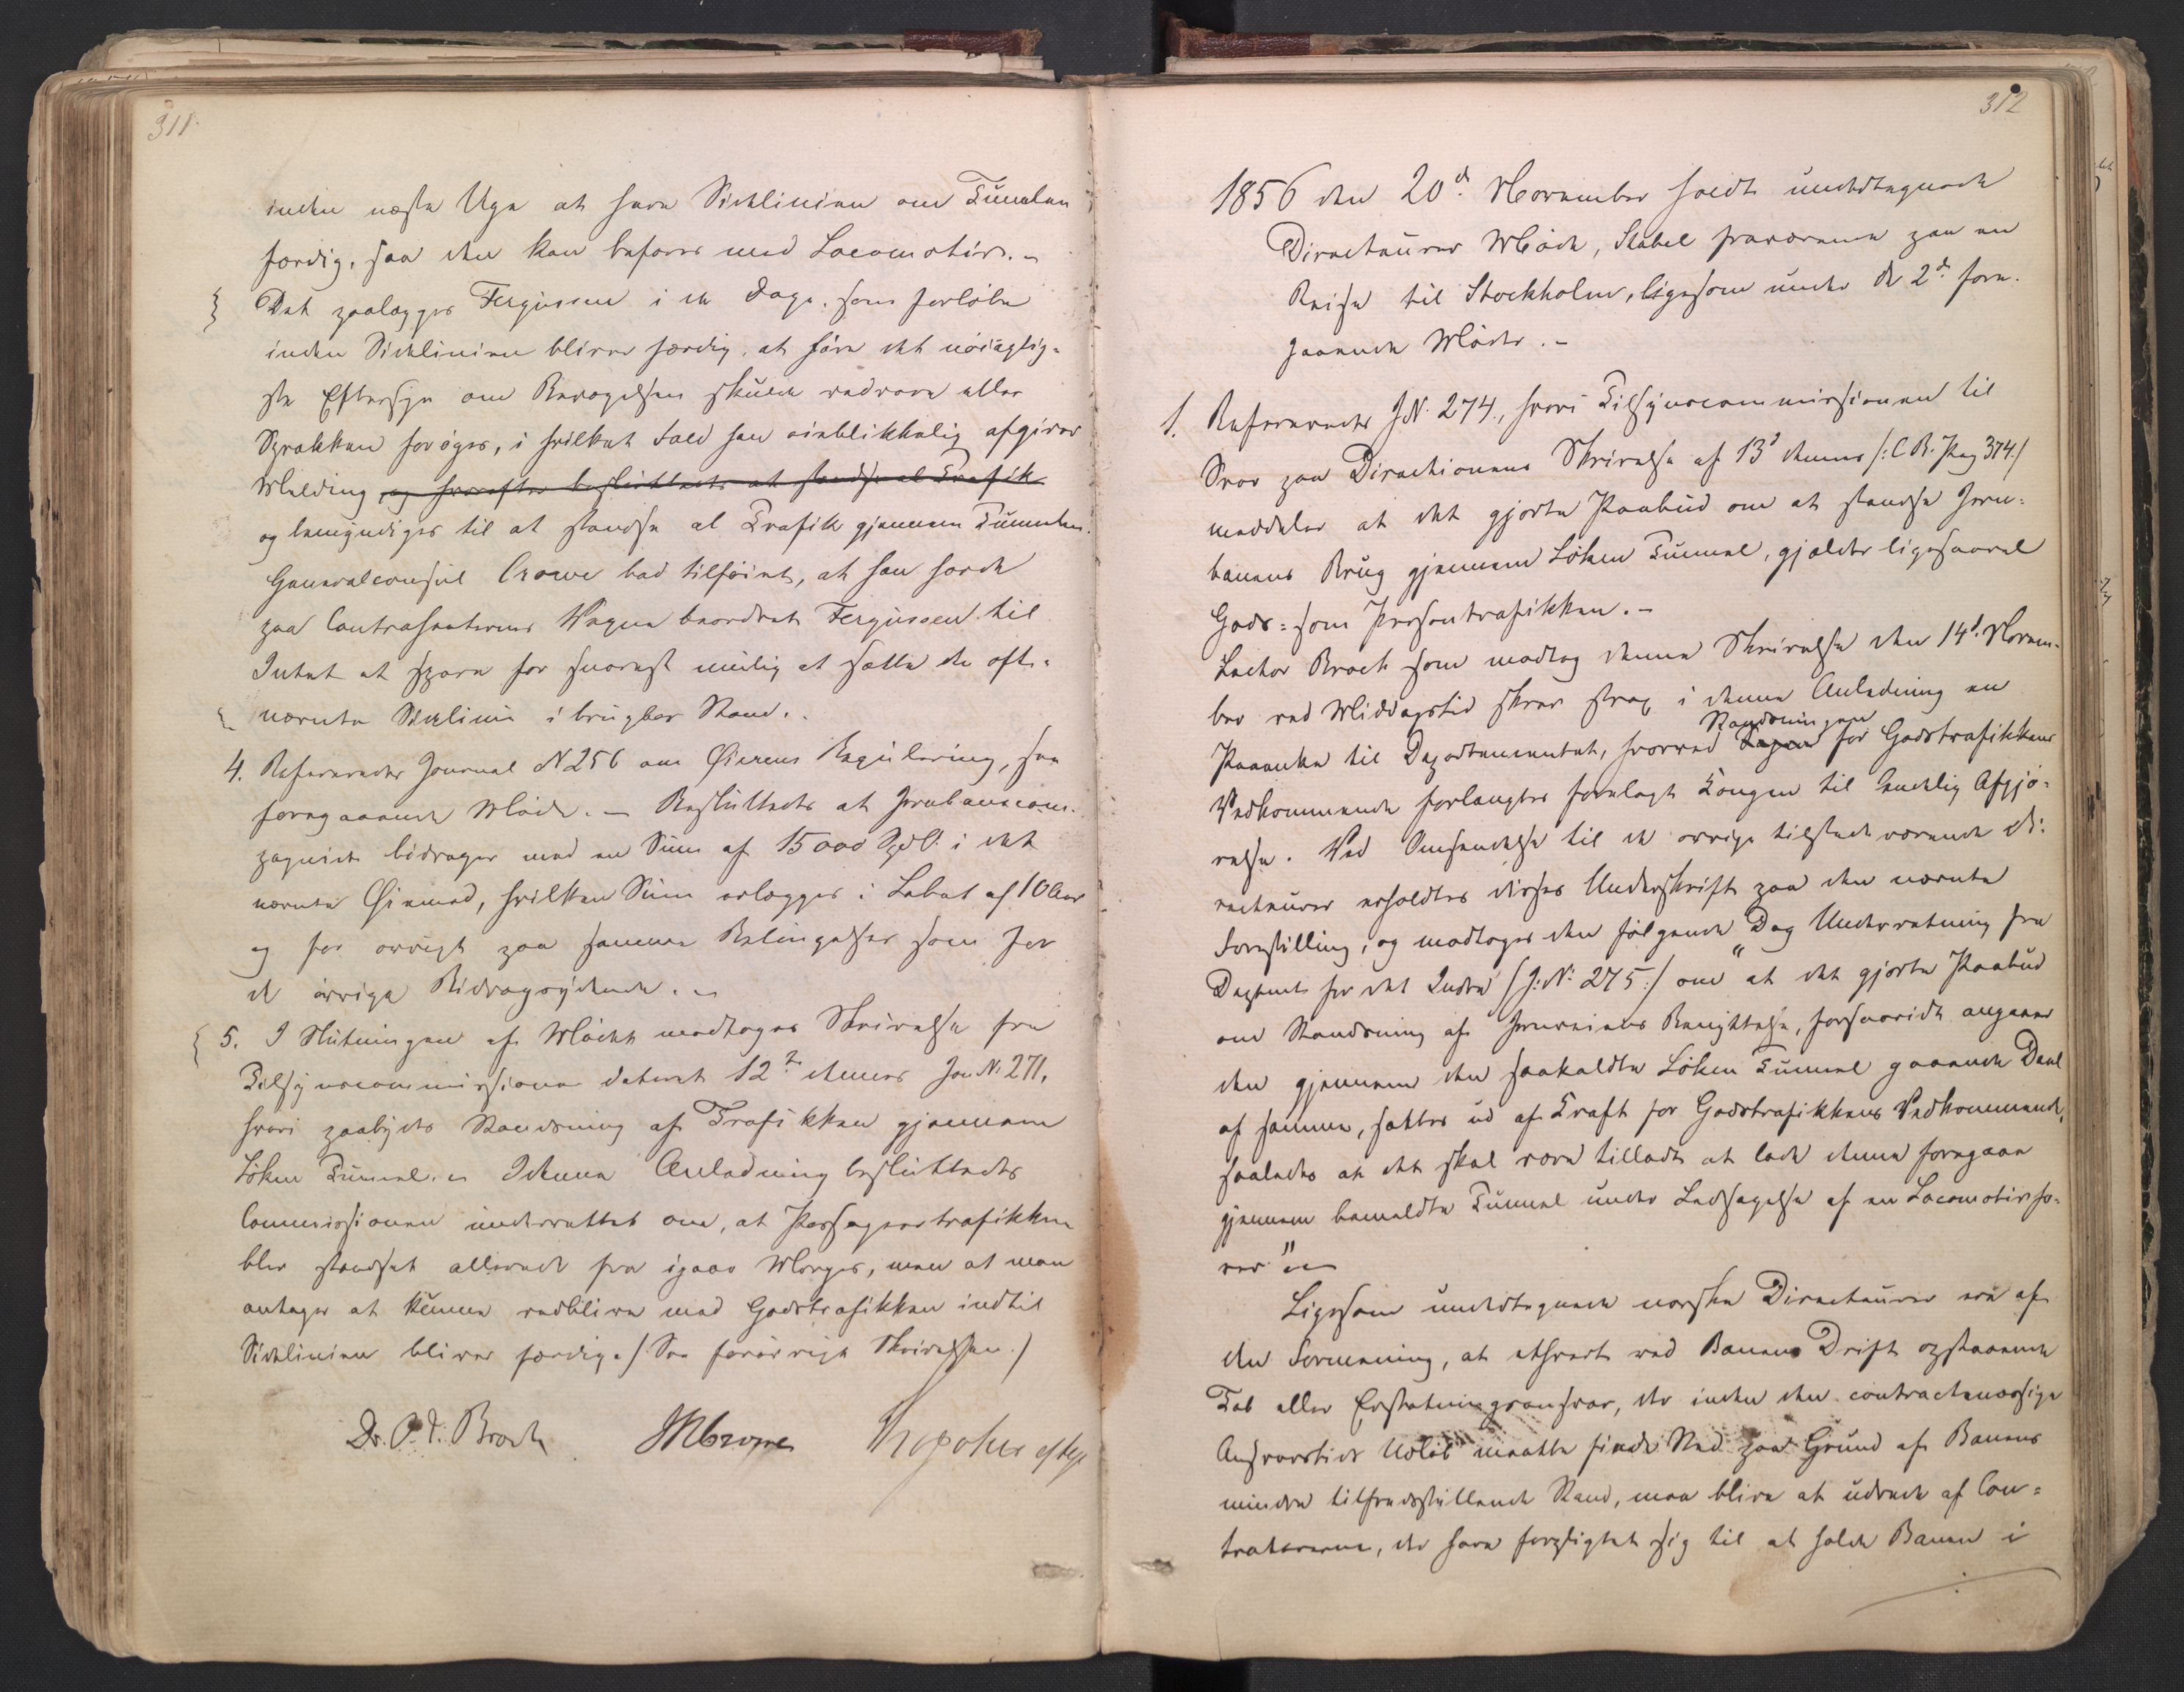 311.
inden næste Uge at have Sidelinien om Tunelen
færdig, saa den kan befares med Locomotiv. –
Det paalægges Fergusson i de Dage, som forløbe
inden Sidelinien bliver færdig, at føre det nøiagtig-
ste Eftersyn om Bevægelsen skulde vedvare eller
Sprækken forøges, i hvilket Fald han øieblikkelig afgiver
Melding og hvorefter besluttedes at standse al Trafik
og bemyndiges til at standse al Trafik gjennem Tunnelen.
Generalconsul Crowe bad tilføiet, at han havde
paa Contrahenternes Vegne beordret Fergusson til
Intet at spare for snarest muligt at sætte den oft-
nævnte Sidelinie i brugbar Stand. –
4. Refereredes Journal N 256 om Øierens Regulering, See
foregaaende Møde. – Besluttedes at Jernbanecom-
pagniet bidrager med en Sum af 15000 Spd. i det
nævnte Øiemed, hvilken Sum erlægges i Løbet af 10 Aar
og for øvrigt paa samme Betingelser som for
de øvrige Bidragydende. –
5. I Slutningen af Mødet modtoges Skrivelse fra
Tilsynscommissionen dateret 12te dennes Jou N. 271,
hvori paabydes Standsning af Trafikken gjennem
Løken Tunnel. – I denne Anledning besluttedes
Commissionen underrettet om, at Passagertrafikken
blev standset allerede fra igaar Morges, men at man
antager at kunne vedblive med Godstrafikken indtil
Sidelinien bliver færdig. /See forøvrigt Skrivelsen./
Dr. O. J. Broch JRCrowe
312
1856 den 20d November holdt undertegnede
Directeurer Møde, Stabel fraværende paa en
Reise til Stockholm, ligesom under de 2de fore-
gaaende Møder. –
1. Refereredes JN. 274, hvori Tilsynscommissionen til
Svar paa Directionens Skrivelse af 13d dennes /:C.B. Pag 374:/
meddeler at det gjorte Paabud om at standse Jern-
banens Brug gjennem Løken Tunnel, gjælder ligesaavel
Gods- som Persontrafikken. –
Lector Broch som modtog denne Skrivelse den 14d Novem-
ber ved Middagstid skrev strax i denne Anledning en
Paaanke til Departementet, hvorved Sagen Standsningen for Godstrafikkens
Vedkommende forlangtes forelagt Kongen til endelig Afgjø-
relse. Ved Omsendelse til de øvrige tilstedeværende Di-
recteurer erholdtes disses Underskrift paa den nævnte
Forestilling, og modtoges den følgende Dag Underretning fra
Departet for det Indre (J.N. 275:/ om "at det gjorte Paabud
om Standsning af Jernveiens Benyttelse, forsaavidt angaaer
den gjennem den saakaldte Løken Tunnel gaaende Deel
af samme, sættes ud af Kraft for Godstrafikkens Vedkommende,
saaledes at det skal være tilladt at lade denne foregaae
gjennem bemeldte Tunnel under Ledsagelse af en Locomotivfø-
rer" –
Ligesom undertegnede norske Directeurer ere af
den Formening, at ethvert ved Banens Drift opstaaende
Tab eller Erstatningsansvar, der inden den contractmæssige
Ansvarstids Udløb maatte finde Sted paa Grund af Banens
mindre tilfredsstillende Stand, maa blive at udrede af Con-
tratørerne, der have forpligtet sig til at holde Banen i